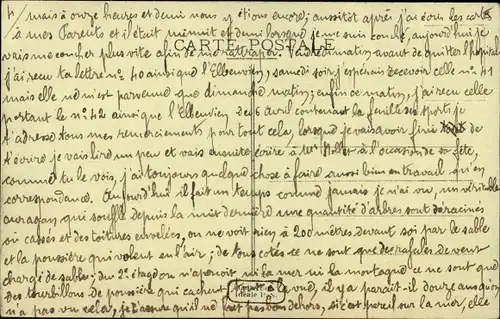 4/ mais à onze heures et demi nous y étions encore, aussitôt après j'ai écris les cartes
à mes Parents et il était minuit et demi lorsque je me suis couché, aujourd'hui je
CARTE POSTALE
vais me coucher plus vite afin de me rattraper. Vendredi matin avant de quitter l'hôpital
j'ai reçu ta lettre n° 40 ainsi que l'Elbeuvien, samedi soir j'espérais recevoir celle n° 41
mais elle ne m'est parvenue que dimanche matin; enfin ce matin, j'ai reçu celle
portant le n° 42 ainsi que l'Elbeuvien du 6 avril contenant la feuille des sports je
t'adresse tous mes remerciements pour tout cela, lorsque je vais avoir fini de
t'écrire je vais lire un peu et vais ensuite écrire à à l'occasion de sa fête,
comme tu le vois, j'ai toujours quelque chose à faire aussi bien en travail qu'en
correspondance. Aujourd'hui il fait un temps comme jamais je n'ai vu, un véritable
ouragan qui souffle depuis la nuit dernière une quantité d'arbres sont déracinés
ou cassés et des toitures envolées, on ne voit rien à 200 mètres devant soi par le sable
et la poussière qui volent en l'air; de tous côtés ce ne sont que des rafales de vent
chargé de sable; du 2e étage on n'aperçoit ni la mer ni la montagne ce ne sont que
des tourbillons de poussière qui cachent toute la vue, il y a paraît-il douze ans qu'on
n'a pas vu cela, je t'assure qu'il ne fait pas bon dehors, si c'est pareil sur la mer, elle
Idéale